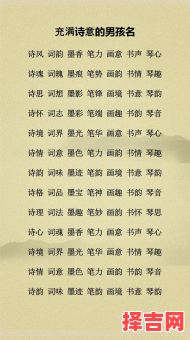 充满诗意的男孩名
诗风 词韵 墨香 笔力 画意 书声 琴心
诗魂 词魄 墨痕 笔势 画韵 书情 琴趣
诗思 词想 墨影 笔锋 画境 书意 琴韵
诗怀 词志 墨彩 笔端 画情 书韵 琴音
诗境 词界 墨光 笔华 画意 书声 琴心
诗情 词意 墨色 笔墨 画韵 书情 琴趣
诗韵 词味 墨迹 笔迹 画境 书意 琴韵
诗格 词品 墨宝 笔神 画趣 书韵 琴音
诗理 词法 墨趣 笔妙 画韵 书怀 琴思
诗心 词魂 墨香 笔力 画意 书声 琴心
诗境 词界 墨光 笔华 画情 书意 琴韵
诗情 词意 墨色 笔墨 画韵 书情 琴音
诗韵 词味 墨迹 笔韵 画境 书意 琴趣
择吉网